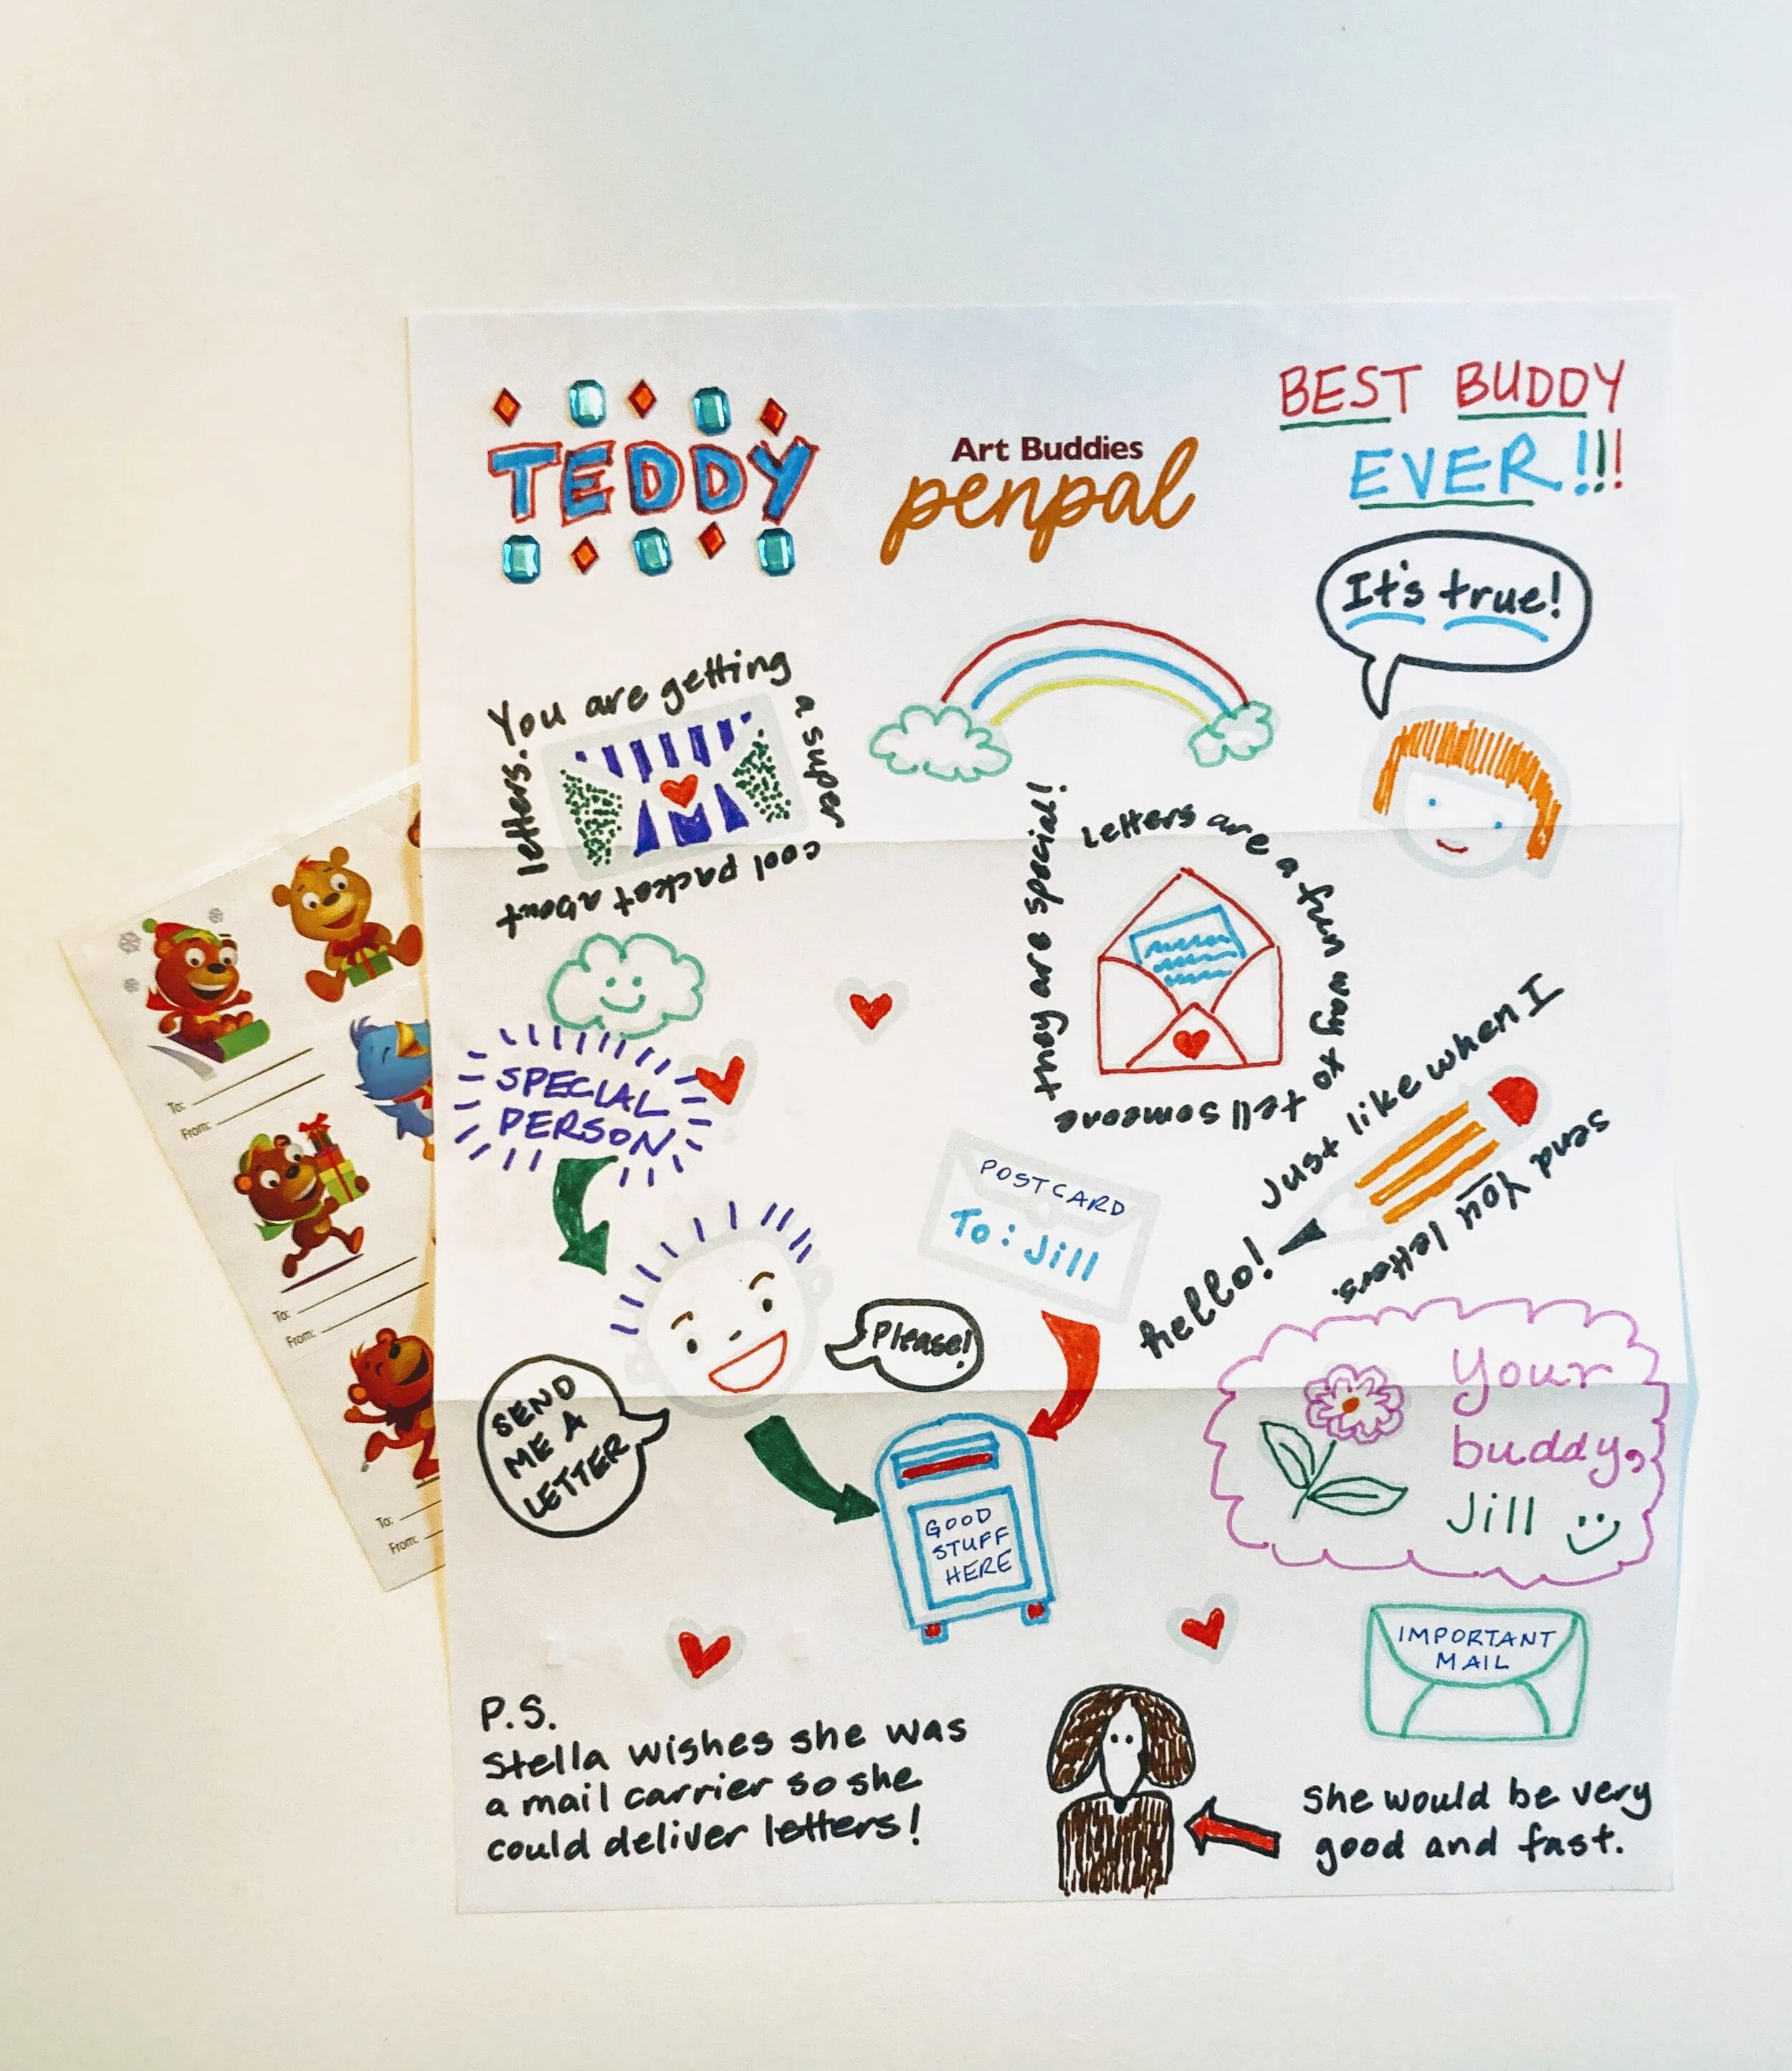 TEDDY
Art Buddies
penpal
BEST BUDDY
EVER!!!
It's true!
You are getting
a super
cool packet about
letters.
Letters are a fun way to tell someone
they are special!
Just like when I
send you letters.
hello!
SPECIAL
PERSON
POSTCARD
To: Jill
Please!
SEND
ME A
LETTER
GOOD
STUFF
HERE
Your
buddy,
Jill
IMPORTANT
MAIL
P.S.
Stella wishes she was
a mail carrier so she
could deliver letters!
She would be very
good and fast.
To:
From:
To:
From:
To:
From: